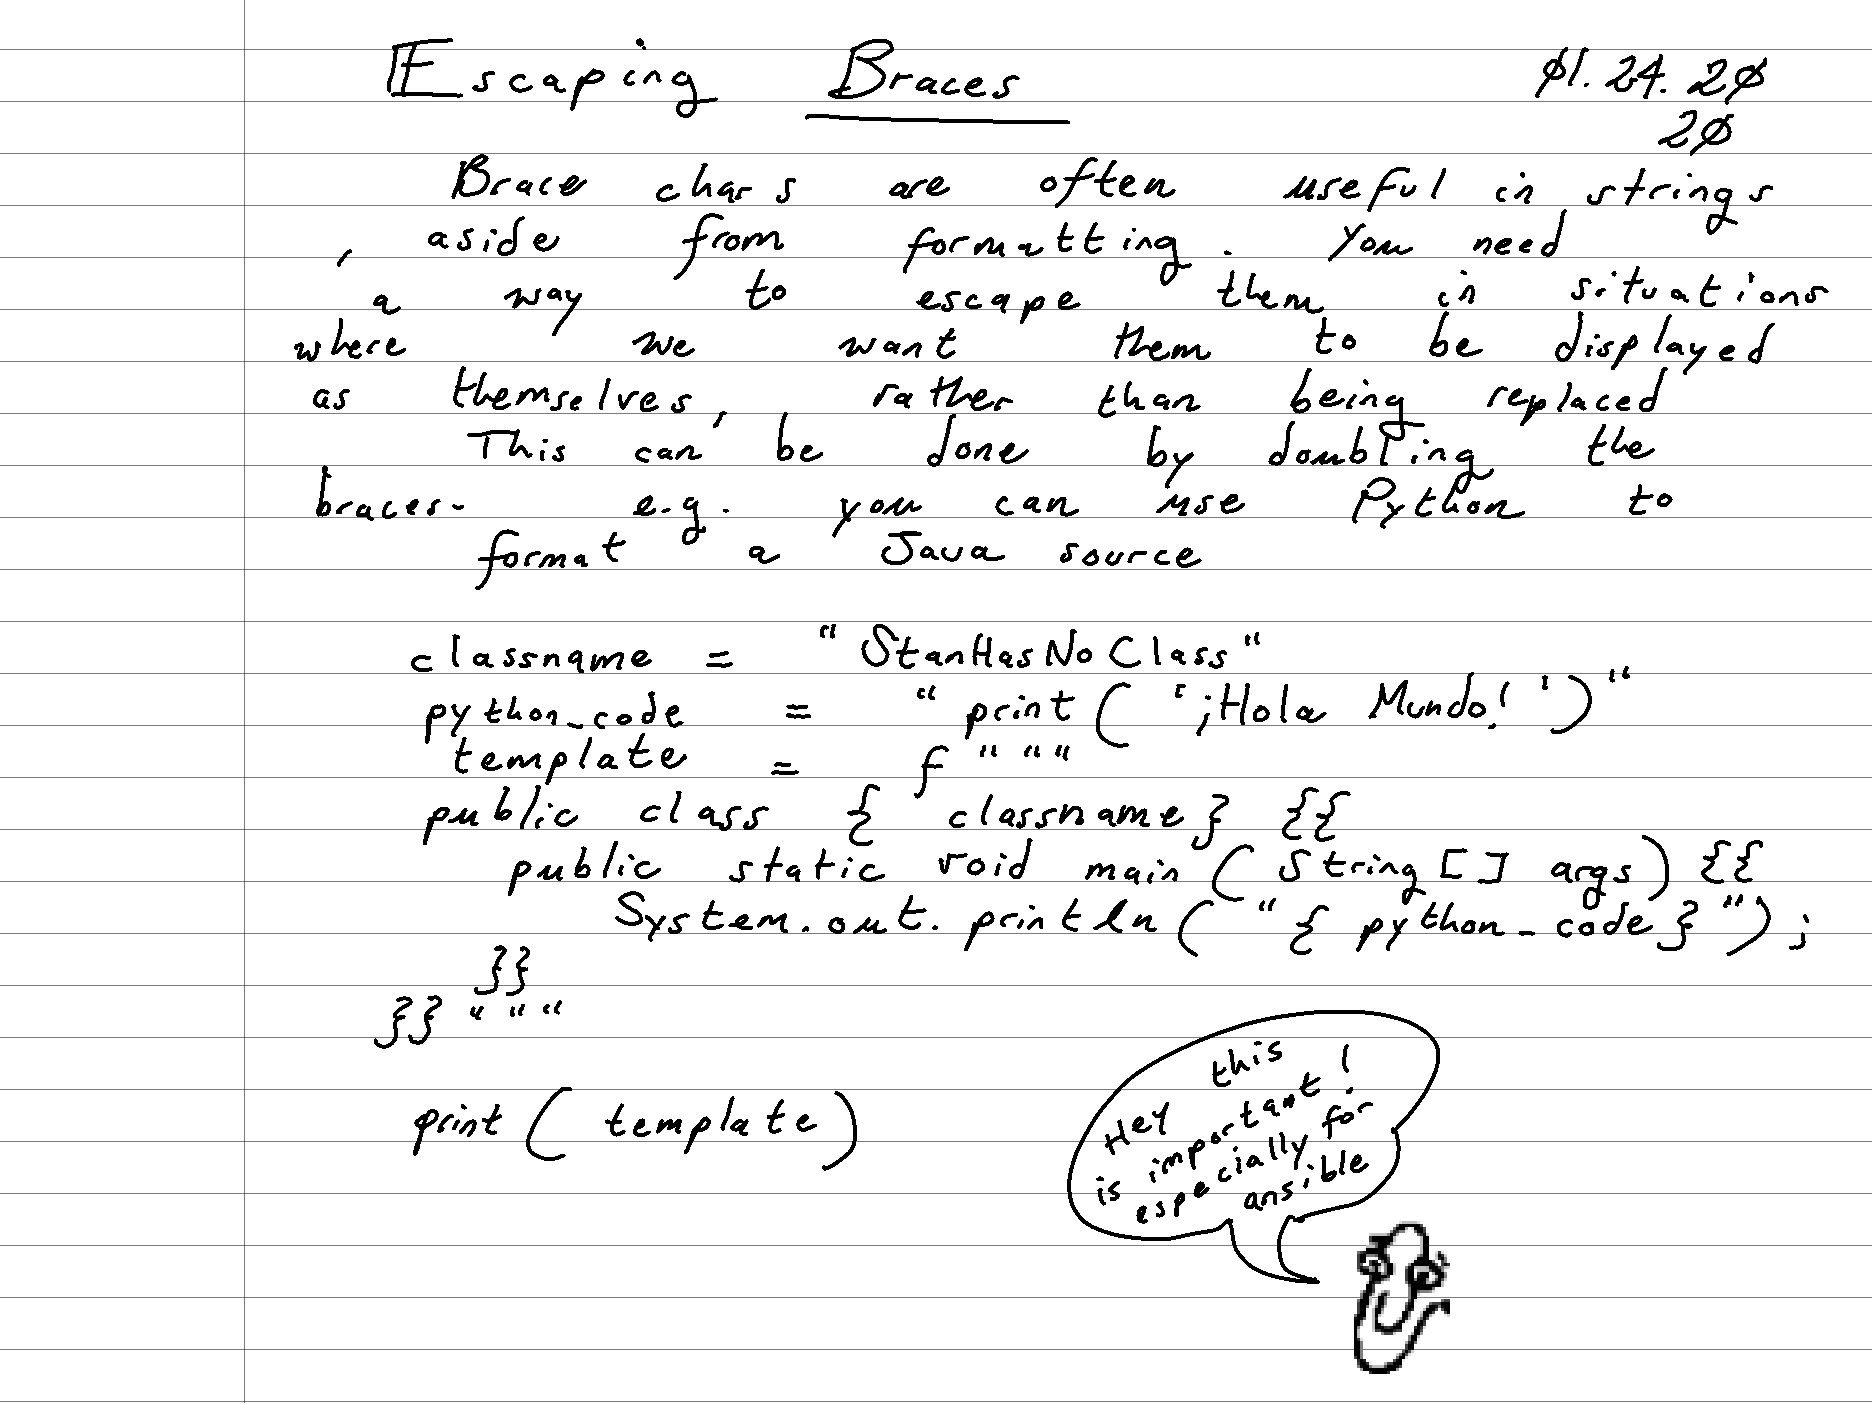 Escaping Braces 01.24.20
20
Brace chars are often useful in strings
, aside from formatting. You need
a way to escape them in situations
where we want them to be displayed
as themselves, rather than being replaced
This can be done by doubling the
braces- e.g. you can use Python to
format a Java source
classname = "StanHasNoClass"
python_code = "print('¡Hola Mundo!')"
template = f"""
public class {classname} {{
public static void main(String[] args) {{
System.out.println("{python_code}");
}}
}}"""
print(template)
Hey this
is important!
especially for
ansible